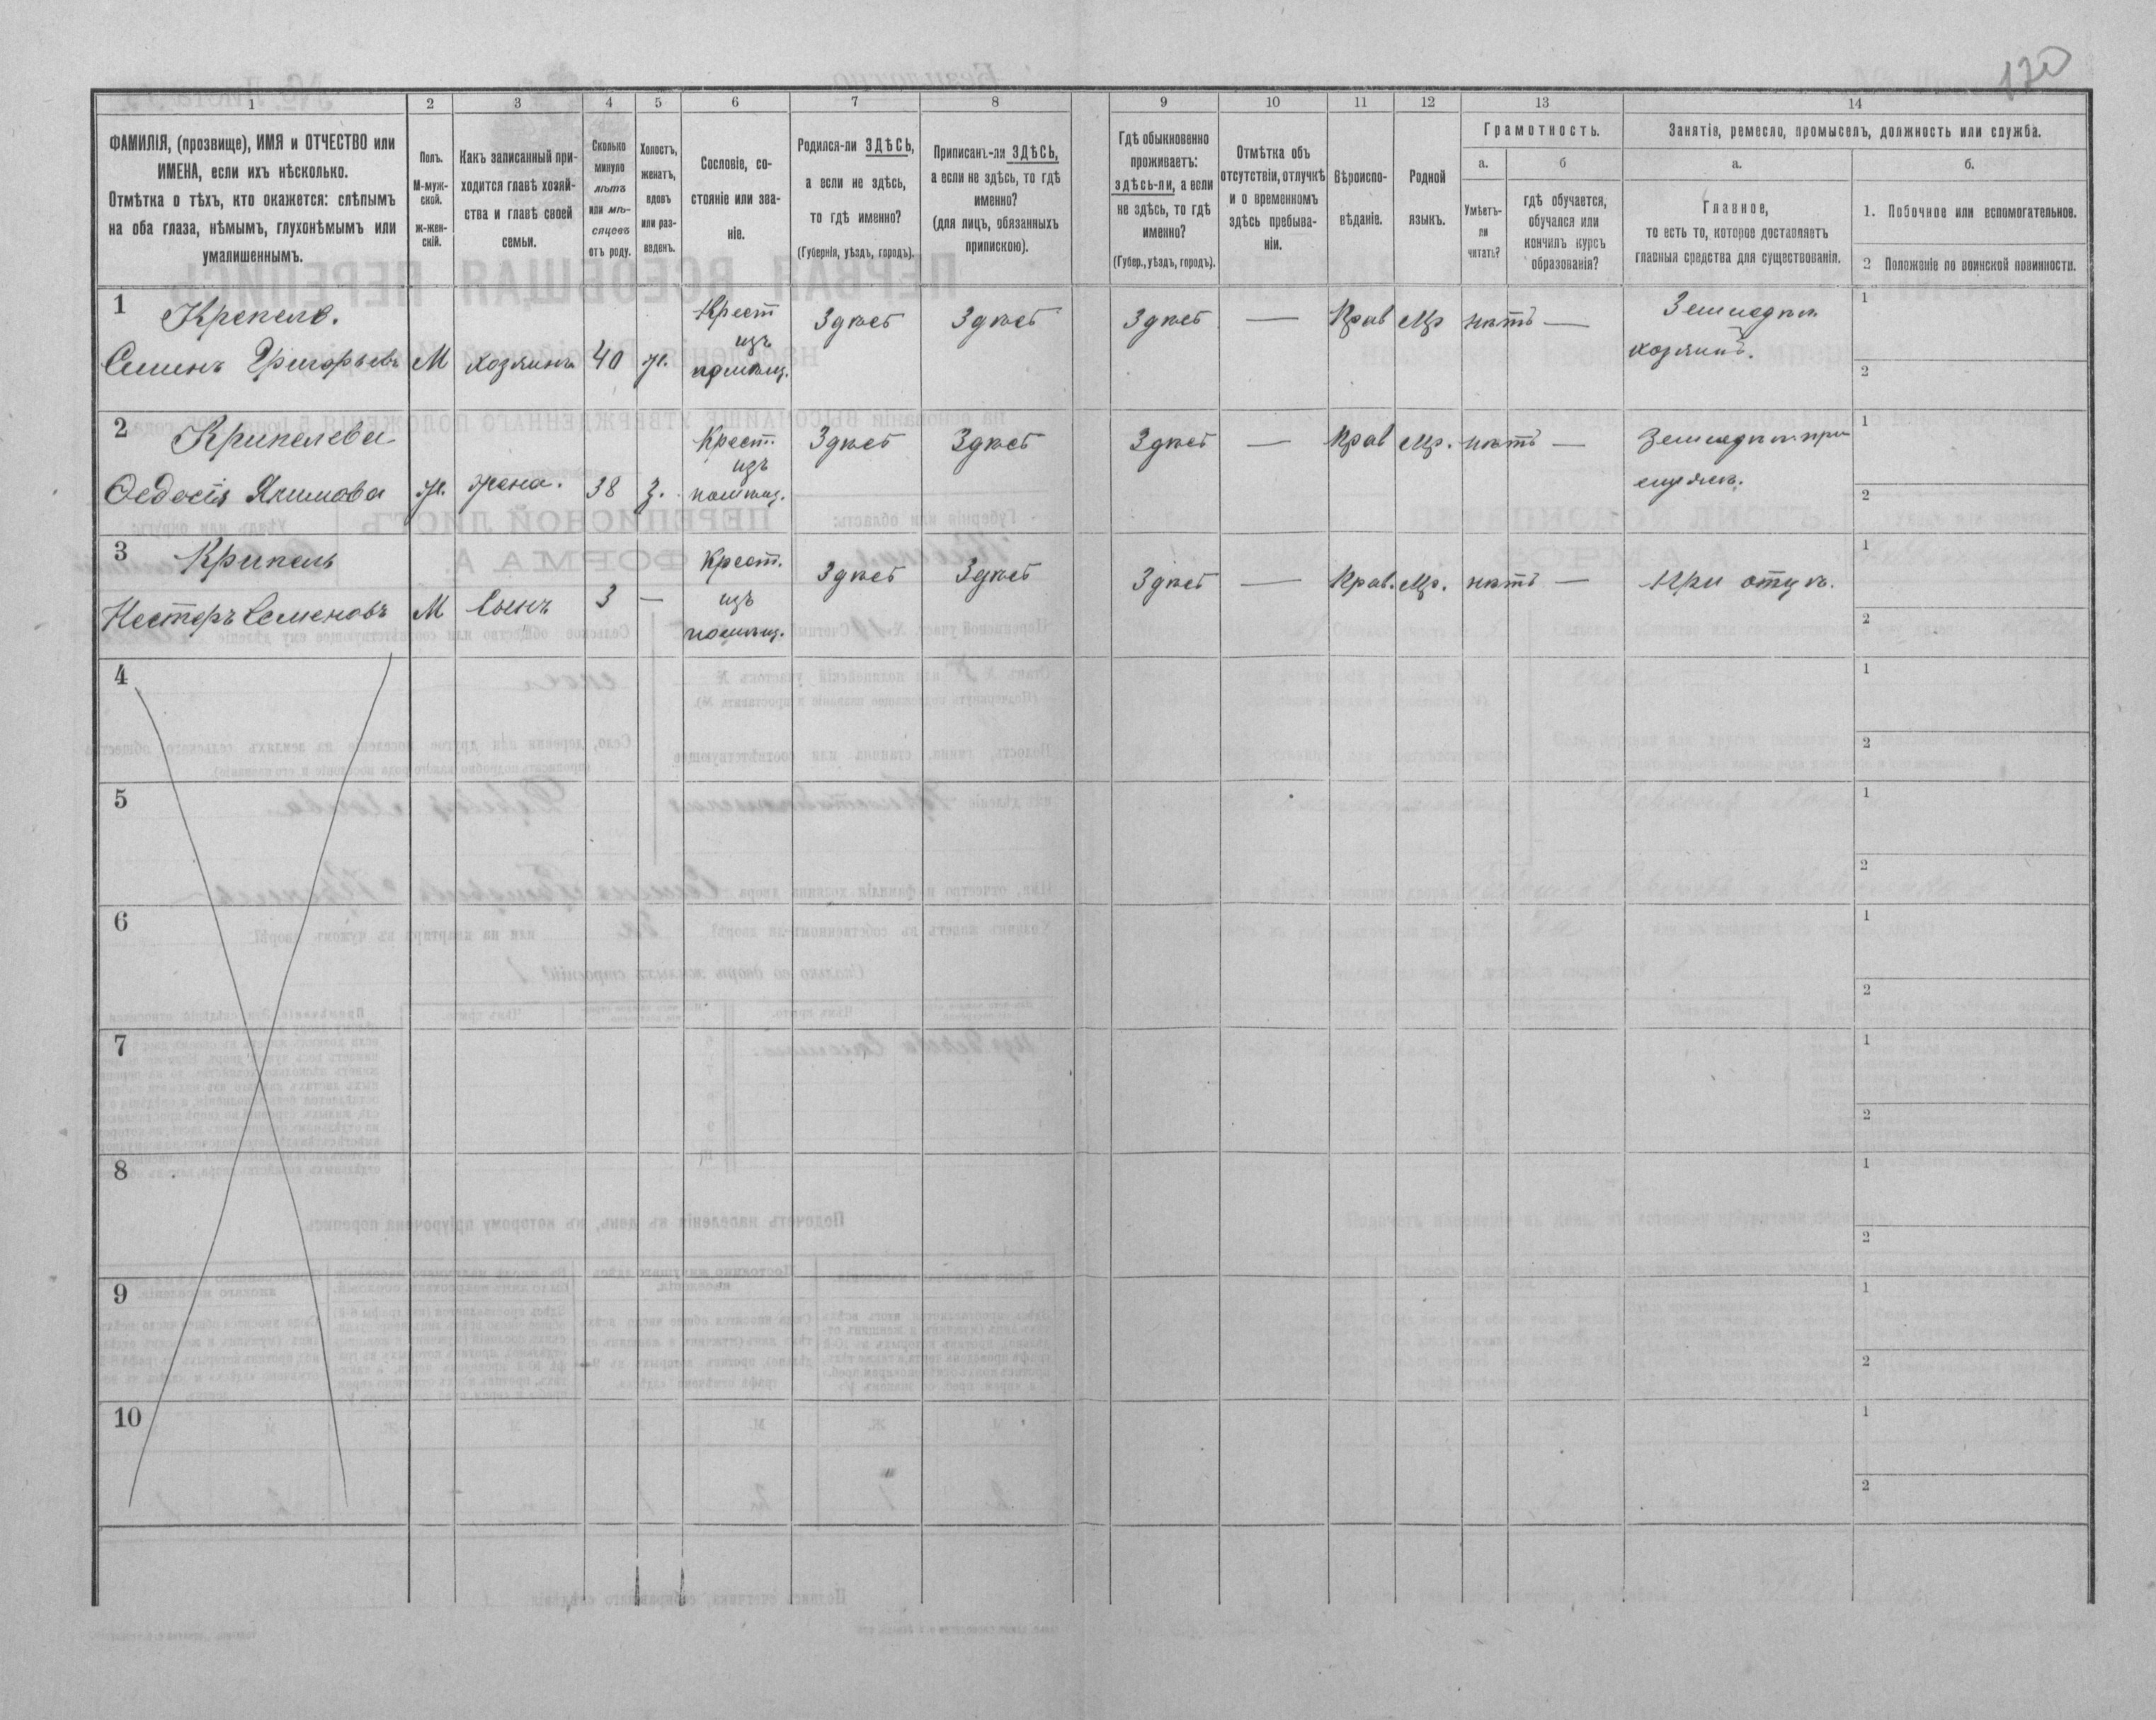 170
1 2 3 4 5 6 7 8 9 10 11 12 13 14
ФАМИЛІЯ, (прозвище), ИМЯ и ОТЧЕСТВО или
ИМЕНА, если ихъ нѣсколько.
Отмѣтка о тѣхъ, кто окажется: слѣпымъ
на оба глаза, нѣмымъ, глухонѣмымъ или
умалишеннымъ.
Полъ.
М-муж-
ской.
ж-жен-
скій.
Какъ записанный при-
ходится главѣ хозяй-
ства и главѣ своей
семьи.
Сколько
минуло
лѣтъ
или мѣ-
сяцевъ
отъ роду.
Холостъ,
женатъ,
вдовъ
или раз-
веденъ.
Сословіе, со-
стояніе или зва-
ніе.
Родился-ли ЗДѢСЬ,
а если не здѣсь,
то гдѣ именно?
(Губернія, уѣздъ, городъ).
Приписанъ-ли ЗДѢСЬ,
а если не здѣсь, то гдѣ
именно?
(для лицъ, обязанныхъ
припискою).
Гдѣ обыкновенно
проживаетъ:
здѣсь-ли, а если
не здѣсь, то гдѣ
именно?
(Губер., уѣздъ, городъ).
Отмѣтка объ
отсутствіи, отлучкѣ
и о временномъ
здѣсь пребыва-
ніи.
Вѣроиспо-
вѣданіе.
Родной
языкъ.
Грамотность.
а.
Умѣетъ-
ли
читать?
б
гдѣ обучается,
обучался или
кончилъ курсъ
образованія?
Занятіе, ремесло, промыселъ, должность или служба.
а.
Главное,
то есть то, которое доставляетъ
главныя средства для существованія.
б.
1. Побочное или вспомогательное.
2 Положеніе по воинской повинности.
1 Семенъ Григорьевъ М Хозяинъ 40 ж.
Крест
изъ
помѣщ.
Здѣсь Здѣсь Здѣсь — Прав Мр нѣтъ —
Земледѣл
хозяинъ.
1
2
2 Крипелева
Ѳедосія Якимова ж. жена. 38 з.
Крест.
изъ
помѣщ.
Здѣсь Здѣсь Здѣсь — Прав Мр. нѣтъ —
Земледѣл. при
мужѣ.
1
2
3 Крипель
Несторъ Семеновъ М Сынъ 3 —
Крест.
изъ
помѣщ.
Здѣсь Здѣсь Здѣсь — Прав. Мр. нѣтъ — При отцѣ.
1
2
4
1
2
5
1
2
6
1
2
7
1
2
8
1
2
9
1
2
10
1
2